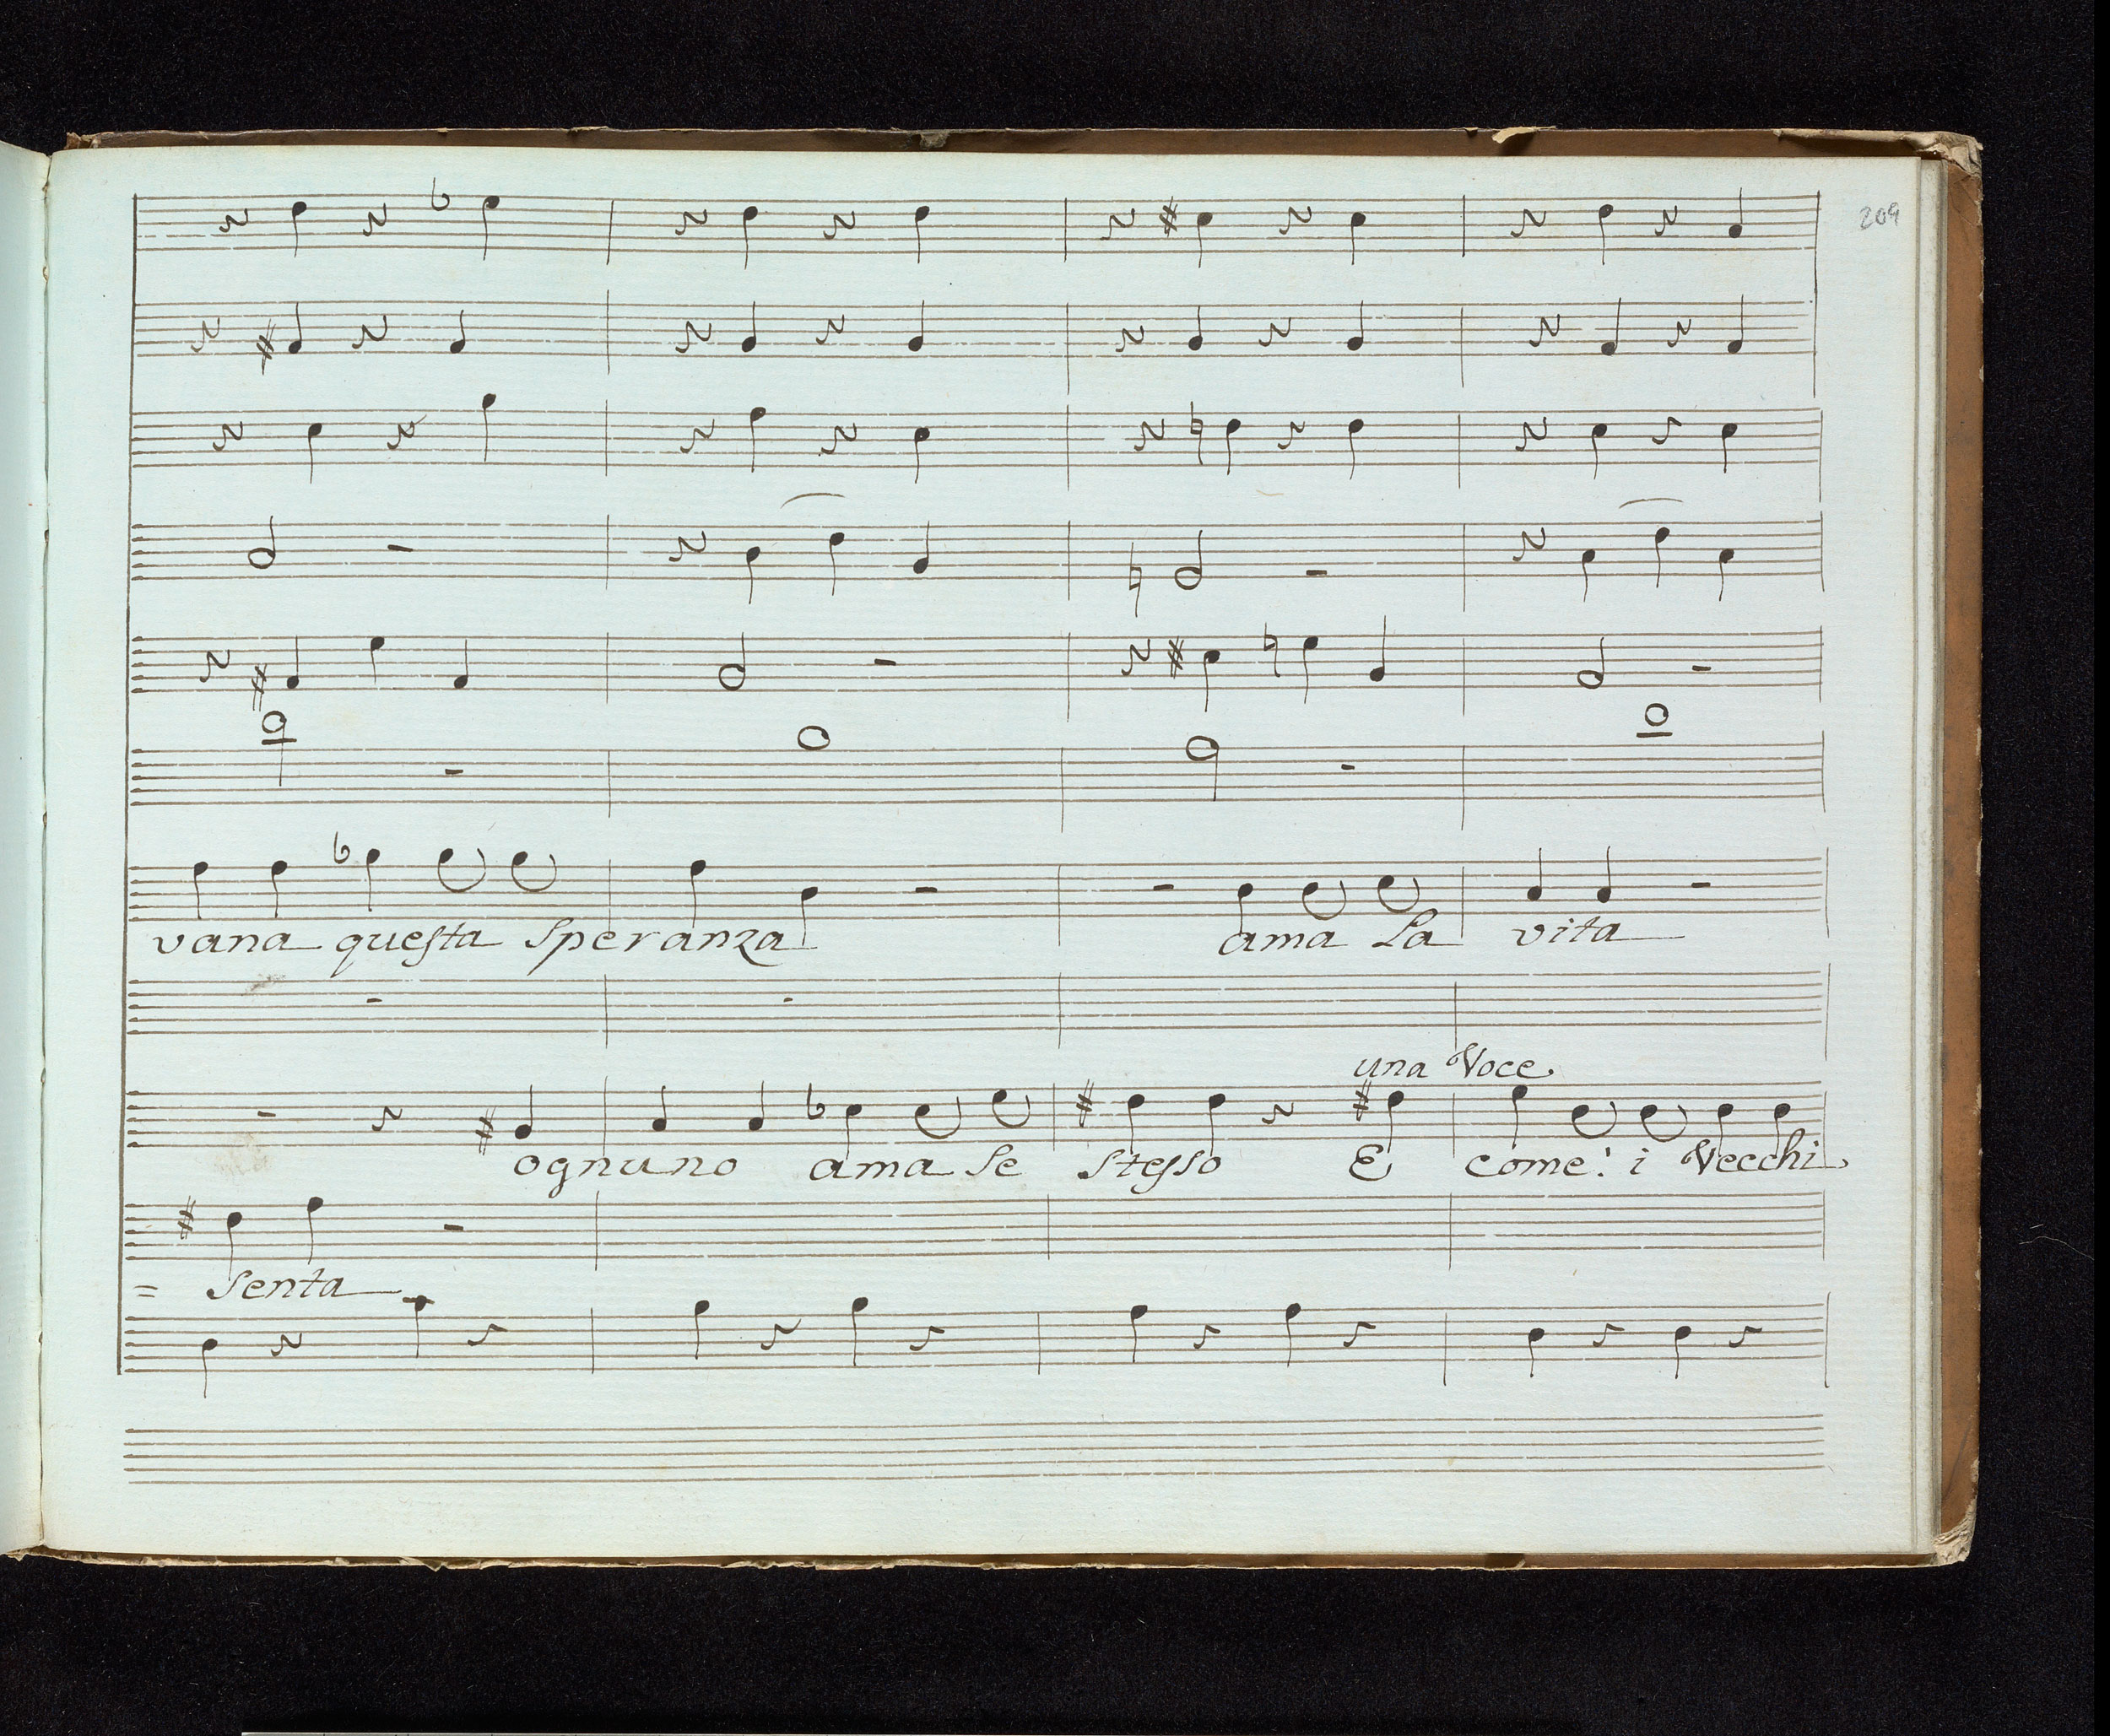 209
vana questa speranza ama la vita
una Voce
ognuno ama se stesso E come! i Vecchi
= senta